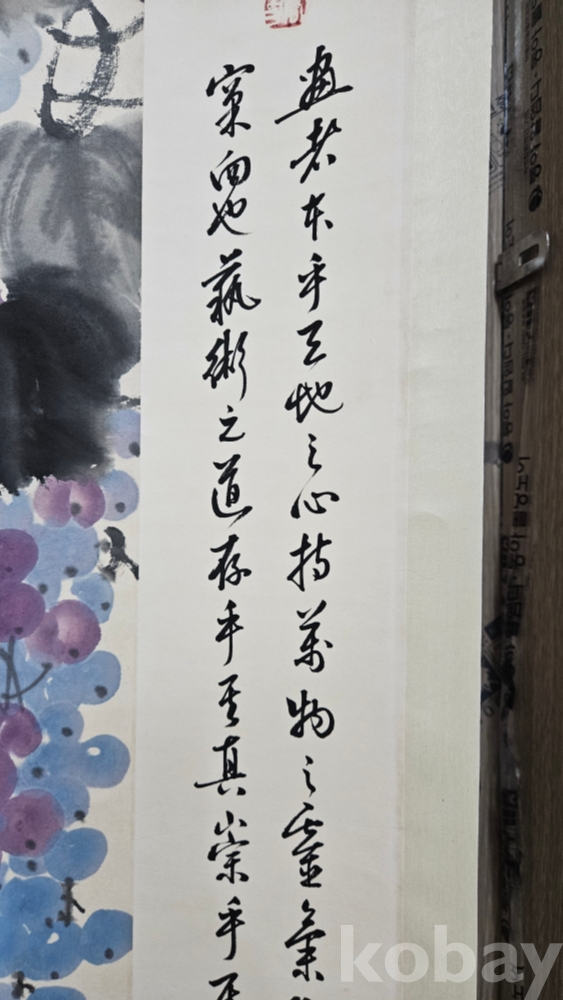 畫者本乎天地之心持萬物之靈氣
向也藝術之道存乎真崇乎
kobay